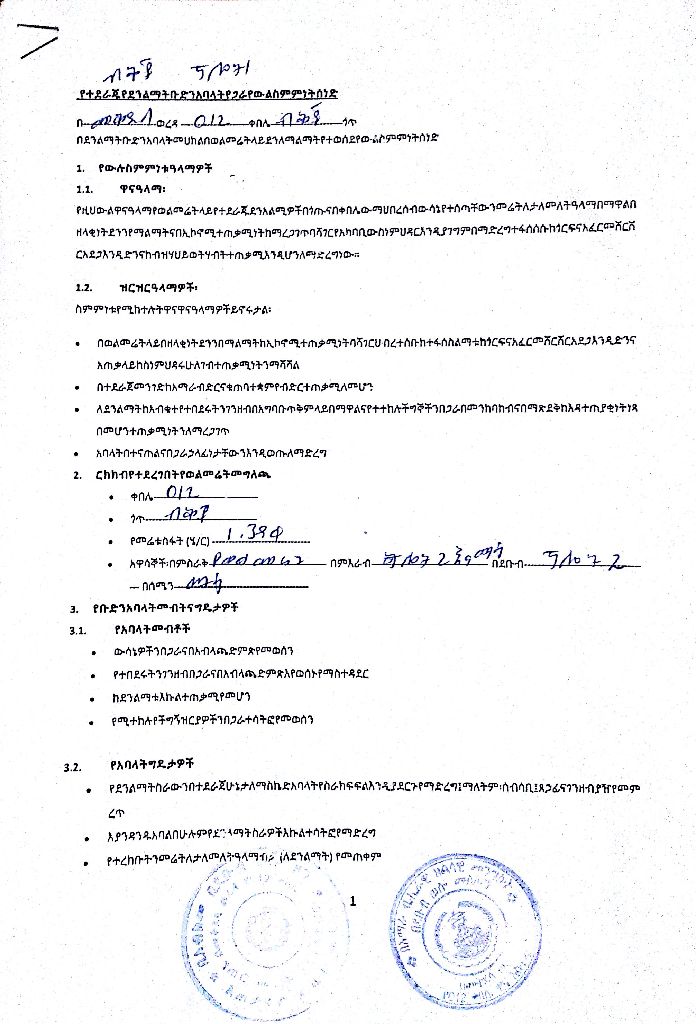 ብትቿ ሻሎት1
የተደራጁየደንልማትቡድንአባላትየጋራየውልስምምነትሰነድ
በ ወረዳ 012 ቀበሌ ብቅቿ ጎጥ
በደንልማትቡድንአባላትመሀከልበወልመሬትላይደንለማልማትየተወሰደየውልስምምነትሰነድ
1. የውሉስምምነቱዓላማዎች
1.1. ዋናዓላማ፡
የዚህውልዋናዓላማየወልመሬትላይየተደራጁደንአልሚዎችበጎጡናበቀበሌውማህበረሰብውሳኔየተሰጣቸውንመሬትለታለመለትዓላማበማዋልበ
ዘላቂነትደንንየማልማትናበኢኮኖሚተጠቃሚነትከማረጋገጥባሻገርየአካባቢውስነምህዳርእንዲያገግምበማድረግተፋሰሱከጎርፍናአፈርመሸርሸ
ርአደጋእንዲድንናከብዝሃህይወትሃብትተጠቃሚእንዲሆንለማድረግነው።
1.2. ዝርዝርዓላማዎች፡
ስምምነቱየሚከተሉትዋናዋናዓላማዎችይኖሩታል፡
• በወልመሬትላይበዘላቂነትደንንበማልማትከኢኮኖሚተጠቃሚነትባሻገርህብረተሰቡከተፋሰስልማቱከጎርፍናአፈርመሸርሸርአደጋእንዲድንና
አጠቃላይከስነምህዳሩሁለገብተጠቃሚነትንማሻሻል
• በተደራጀመንገድከአማራብድርናቁጠባተቋምየብድርተጠቃሚለመሆን
• ለደንልማትከአብቁተየተበደሩትንገንዘብበአግባቡጥቅምላይበማዋልናየተተከሉችግኞችንበጋራበመንከባከብናበማጽደቅከእዳተጠያቂነትነጻ
በመሆንተጠቃሚነትንለማረጋገጥ
• አባላትበተናጠልናበጋራኃላፊነታቸውንእንዲወጡለማድረግ
2. ርክክብየተደረገበትየወልመሬትመግለጫ
• ቀበሌ 012
• ጎጥ ብቅቿ
• የመሬቱስፋት (ሄ/ር) 1.394
• አዋሳኞች፡በምስራቅ በምእራብ ሻሎት 2 በደቡብ ሻሎት 2
– በሰሜን
3. የቡድንአባላትመብትናግዴታዎች
3.1. የአባላትመብቶች
• ውሳኔዎችንበጋራናበአብላጫድምጽየመወሰን
• የተበደሩትንገንዘብበጋራናበአብላጫድምጽእየወሰኑየማስተዳደር
• ከደንልማቱእኩልተጠቃሚየመሆን
• የሚተከሉየችግኝዝርያዎችንበጋራተሳትፎየመወሰን
3.2. የአባላትግዴታዎች
• የደንልማትስራውንበተደራጀሁኔታለማስኬድአባላትየስራክፍፍልእንዲያደርጉየማድረግ፤ማለትም፡ሰብሳቢ፤ጸኃፊናገንዘብያዥየመምረ
ረጥ
• እያንዳንዱአባልበሁሉምየደንልማትስራዎችእኩልተሳትፎየማድረግ
• የተረከቡትንመሬትለታለመለትዓላማብቻ (ለደንልማት) የመጠቀም
1